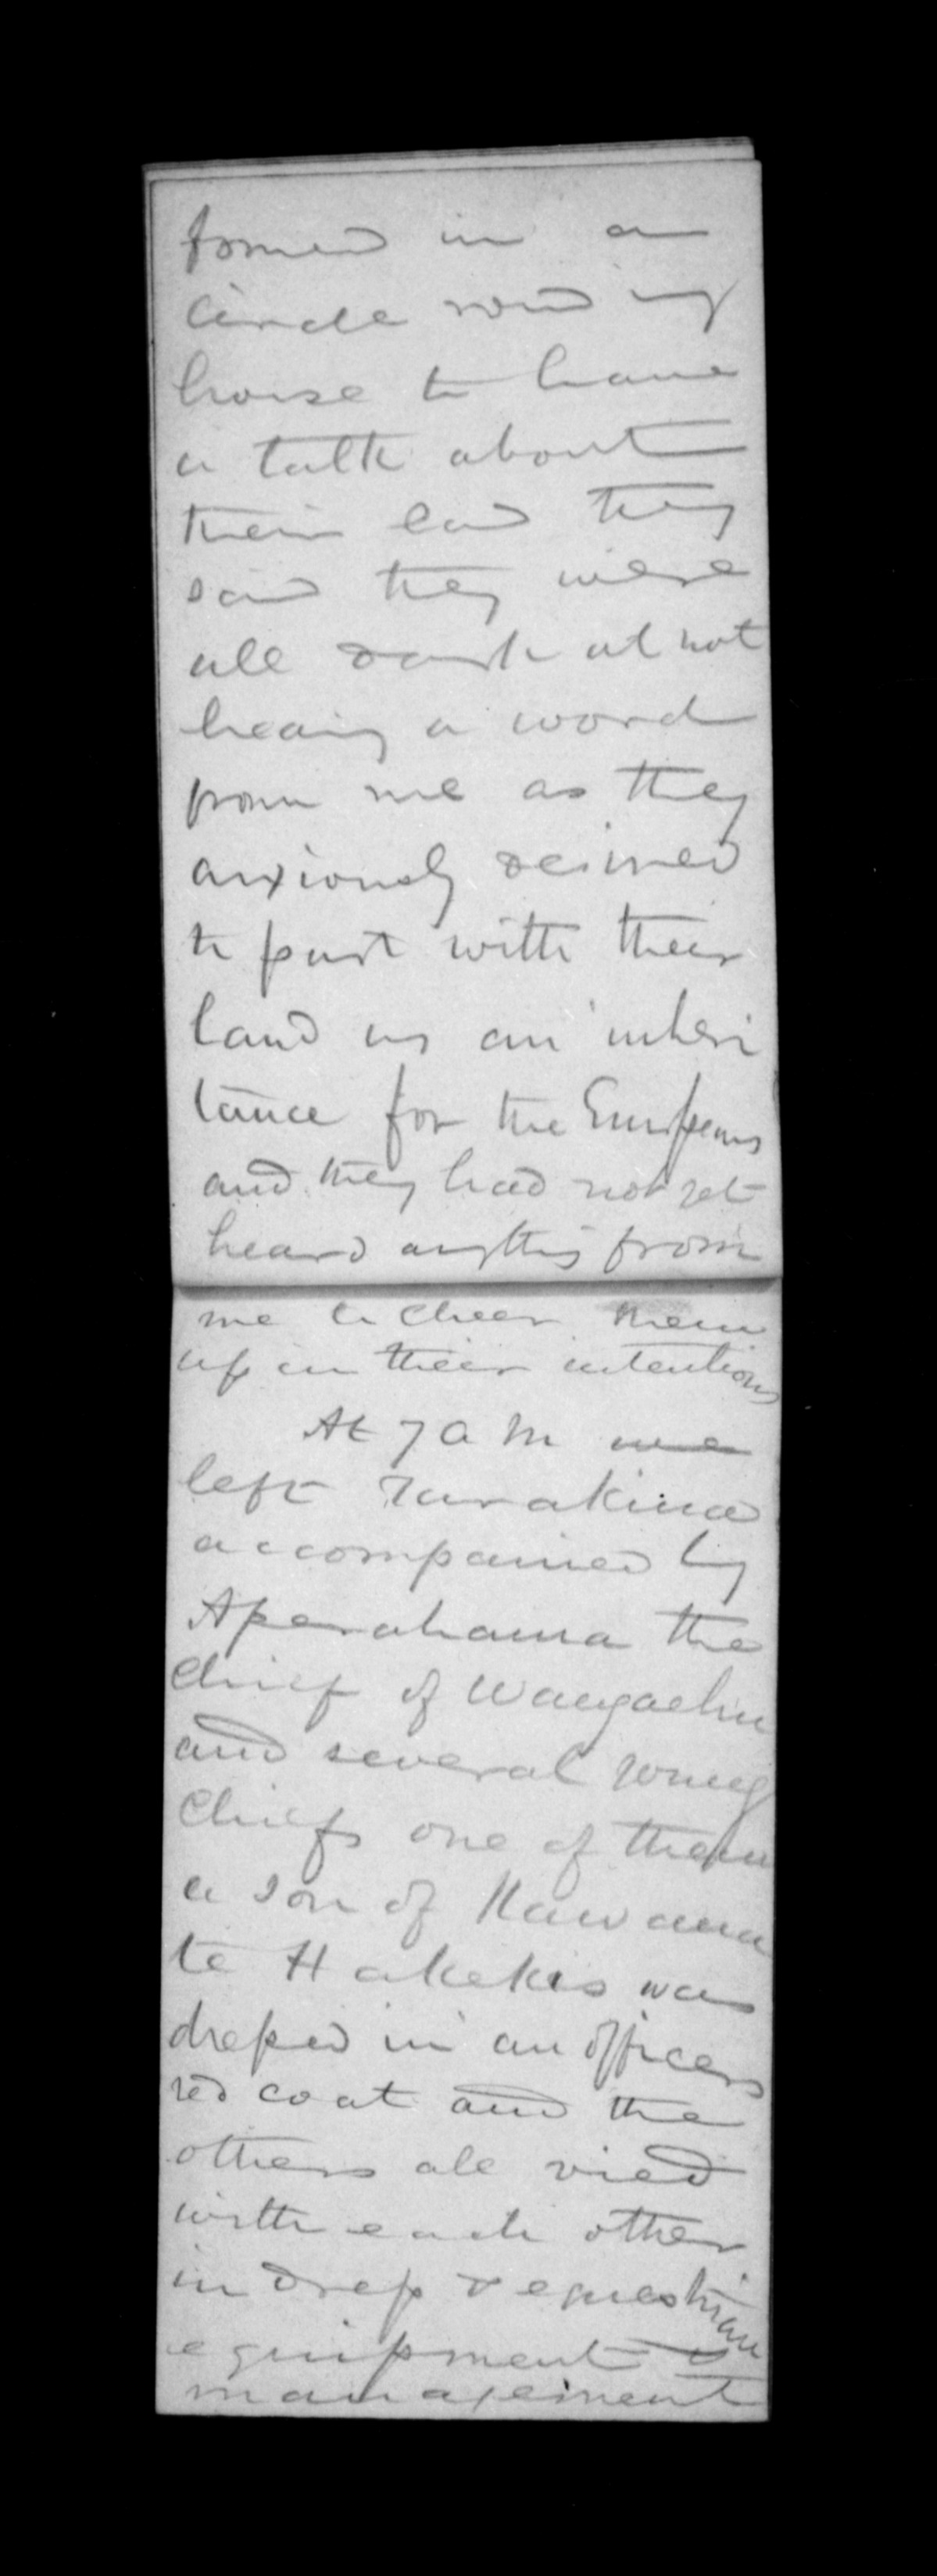 formed in a
circle round my
horse to have
a talk about
their land they
said they were
all dark at not
hearing a word
from me as they
anxiously desired
to part with their
land as an inheri
tance for the Europeans
and they had not yet
heard anything from
me to cheer them
up in their intentions
At 7 A M we
left Turakina
accompanied by
Aperahama the
Chief of Wangaehu
and several young
Chiefs one of them
a son of Kawana
te Hakekes was
dressed in an officers
red coat and the
others all vied
with each other
in dress & equestrian
equipment &
management